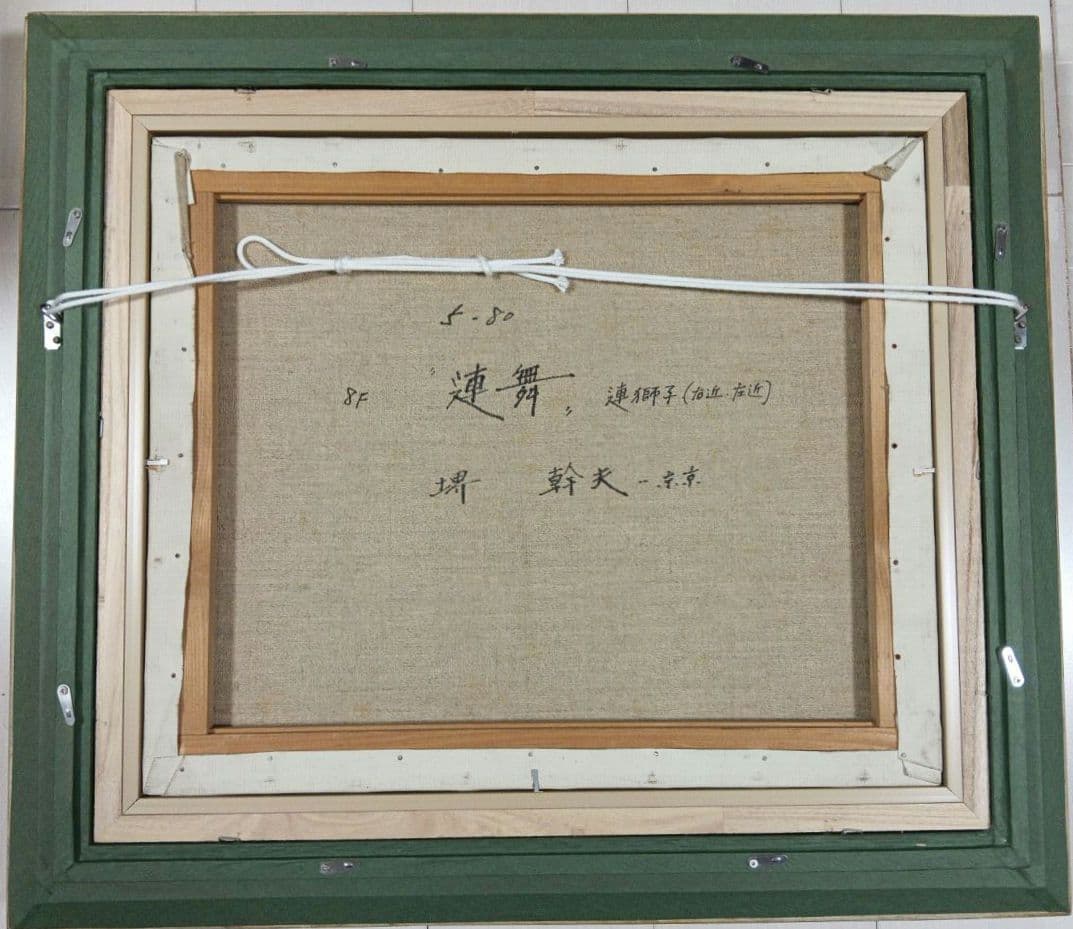 5-80
8F 〝連舞〟 連獅子(右近・左近)
堺 幹夫 -東京